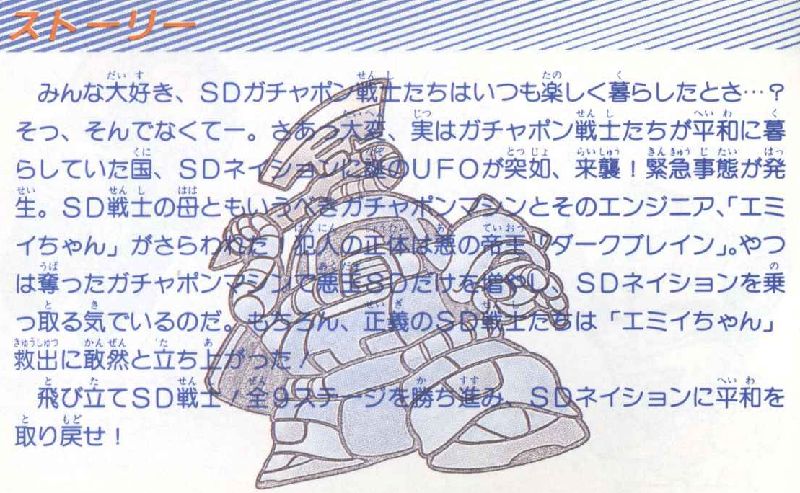 ストーリー
みんな大好き、SDガチャポン戦士たちはいつも楽しく暮らしたとさ…?
そっ、そんでなくてー。さあっ大変、実はガチャポン戦士たちが平和に暮
らしていた国、SDネイションに謎のUFOが突如、来襲!緊急事態が発
生。SD戦士の母ともいうべきガチャポンマシンとそのエンジニア、「エミ
イちゃん」がさらわれた!犯人の正体は悪の帝王「ダークブレイン」。やつ
は奪ったガチャポンマシンで悪玉SDだけを増やし、SDネイションを乗
っ取る気でいるのだ。もちろん、正義のSD戦士たちは「エミイちゃん」
救出に敢然と立ち上がった!
飛び立てSD戦士!全9ステージを勝ち進み、SDネイションに平和を
取り戻せ!